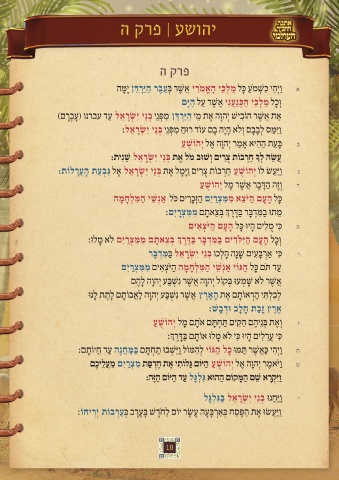 יהושע | פרק ה
אתה
הענק
העולמי
פרק ה
א וַיְהִי כִשְׁמֹעַ כָּל מַלְכֵי הָאֱמֹרִי אֲשֶׁר בְּעֵבֶר הַיַּרְדֵּן יָמָּה
וְכָל מַלְכֵי הַכְּנַעֲנִי אֲשֶׁר עַל הַיָּם
אֵת אֲשֶׁר הוֹבִישׁ יְהוָה אֶת מֵי הַיַּרְדֵּן מִפְּנֵי בְנֵי יִשְׂרָאֵל עַד עברנו (עָבְרָם)
וַיִּמַּס לְבָבָם וְלֹא הָיָה בָם עוֹד רוּחַ מִפְּנֵי בְּנֵי יִשְׂרָאֵל:
ב בָּעֵת הַהִיא אָמַר יְהוָה אֶל יְהוֹשֻׁעַ
עֲשֵׂה לְךָ חַרְבוֹת צֻרִים וְשׁוּב מֹל אֶת בְּנֵי יִשְׂרָאֵל שֵׁנִית:
ג וַיַּעַשׂ לוֹ יְהוֹשֻׁעַ חַרְבוֹת צֻרִים וַיָּמָל אֶת בְּנֵי יִשְׂרָאֵל אֶל גִּבְעַת הָעֲרָלוֹת:
ד וְזֶה הַדָּבָר אֲשֶׁר מָל יְהוֹשֻׁעַ
כָּל הָעָם הַיֹּצֵא מִמִּצְרַיִם הַזְּכָרִים כֹּל אַנְשֵׁי הַמִּלְחָמָה
מֵתוּ בַמִּדְבָּר בַּדֶּרֶךְ בְּצֵאתָם מִמִּצְרָיִם:
ה כִּי מֻלִים הָיוּ כָּל הָעָם הַיֹּצְאִים
וְכָל הָעָם הַיִּלֹּדִים בַּמִּדְבָּר בַּדֶּרֶךְ בְּצֵאתָם מִמִּצְרַיִם לֹא מָלוּ:
ו כִּי אַרְבָּעִים שָׁנָה הָלְכוּ בְנֵי יִשְׂרָאֵל בַּמִּדְבָּר
עַד תֹּם כָּל הַגּוֹי אַנְשֵׁי הַמִּלְחָמָה הַיֹּצְאִים מִמִּצְרַיִם
אֲשֶׁר לֹא שָׁמְעוּ בְּקוֹל יְהוָה אֲשֶׁר נִשְׁבַּע יְהוָה לָהֶם
לְבִלְתִּי הַרְאוֹתָם אֶת הָאָרֶץ אֲשֶׁר נִשְׁבַּע יְהוָה לַאֲבוֹתָם לָתֶת לָנוּ
אֶרֶץ זָבַת חָלָב וּדְבָשׁ:
ז וְאֶת בְּנֵיהֶם הֵקִים תַּחְתָּם אֹתָם מָל יְהוֹשֻׁעַ
כִּי עֲרֵלִים הָיוּ כִּי לֹא מָלוּ אוֹתָם בַּדָּרֶךְ:
ח וַיְהִי כַּאֲשֶׁר תַּמּוּ כָל הַגּוֹי לְהִמּוֹל וַיֵּשְׁבוּ תַחְתָּם בַּמַּחֲנֶה עַד חֲיוֹתָם:
ט וַיֹּאמֶר יְהוָה אֶל יְהוֹשֻׁעַ הַיּוֹם גַּלּוֹתִי אֶת חֶרְפַּת מִצְרַיִם מֵעֲלֵיכֶם
וַיִּקְרָא שֵׁם הַמָּקוֹם הַהוּא גִּלְגָּל עַד הַיּוֹם הַזֶּה:
י וַיַּחֲנוּ בְנֵי יִשְׂרָאֵל בַּגִּלְגָּל
וַיַּעֲשׂוּ אֶת הַפֶּסַח בְּאַרְבָּעָה עָשָׂר יוֹם לַחֹדֶשׁ בָּעֶרֶב בְּעַרְבוֹת יְרִיחוֹ:
10